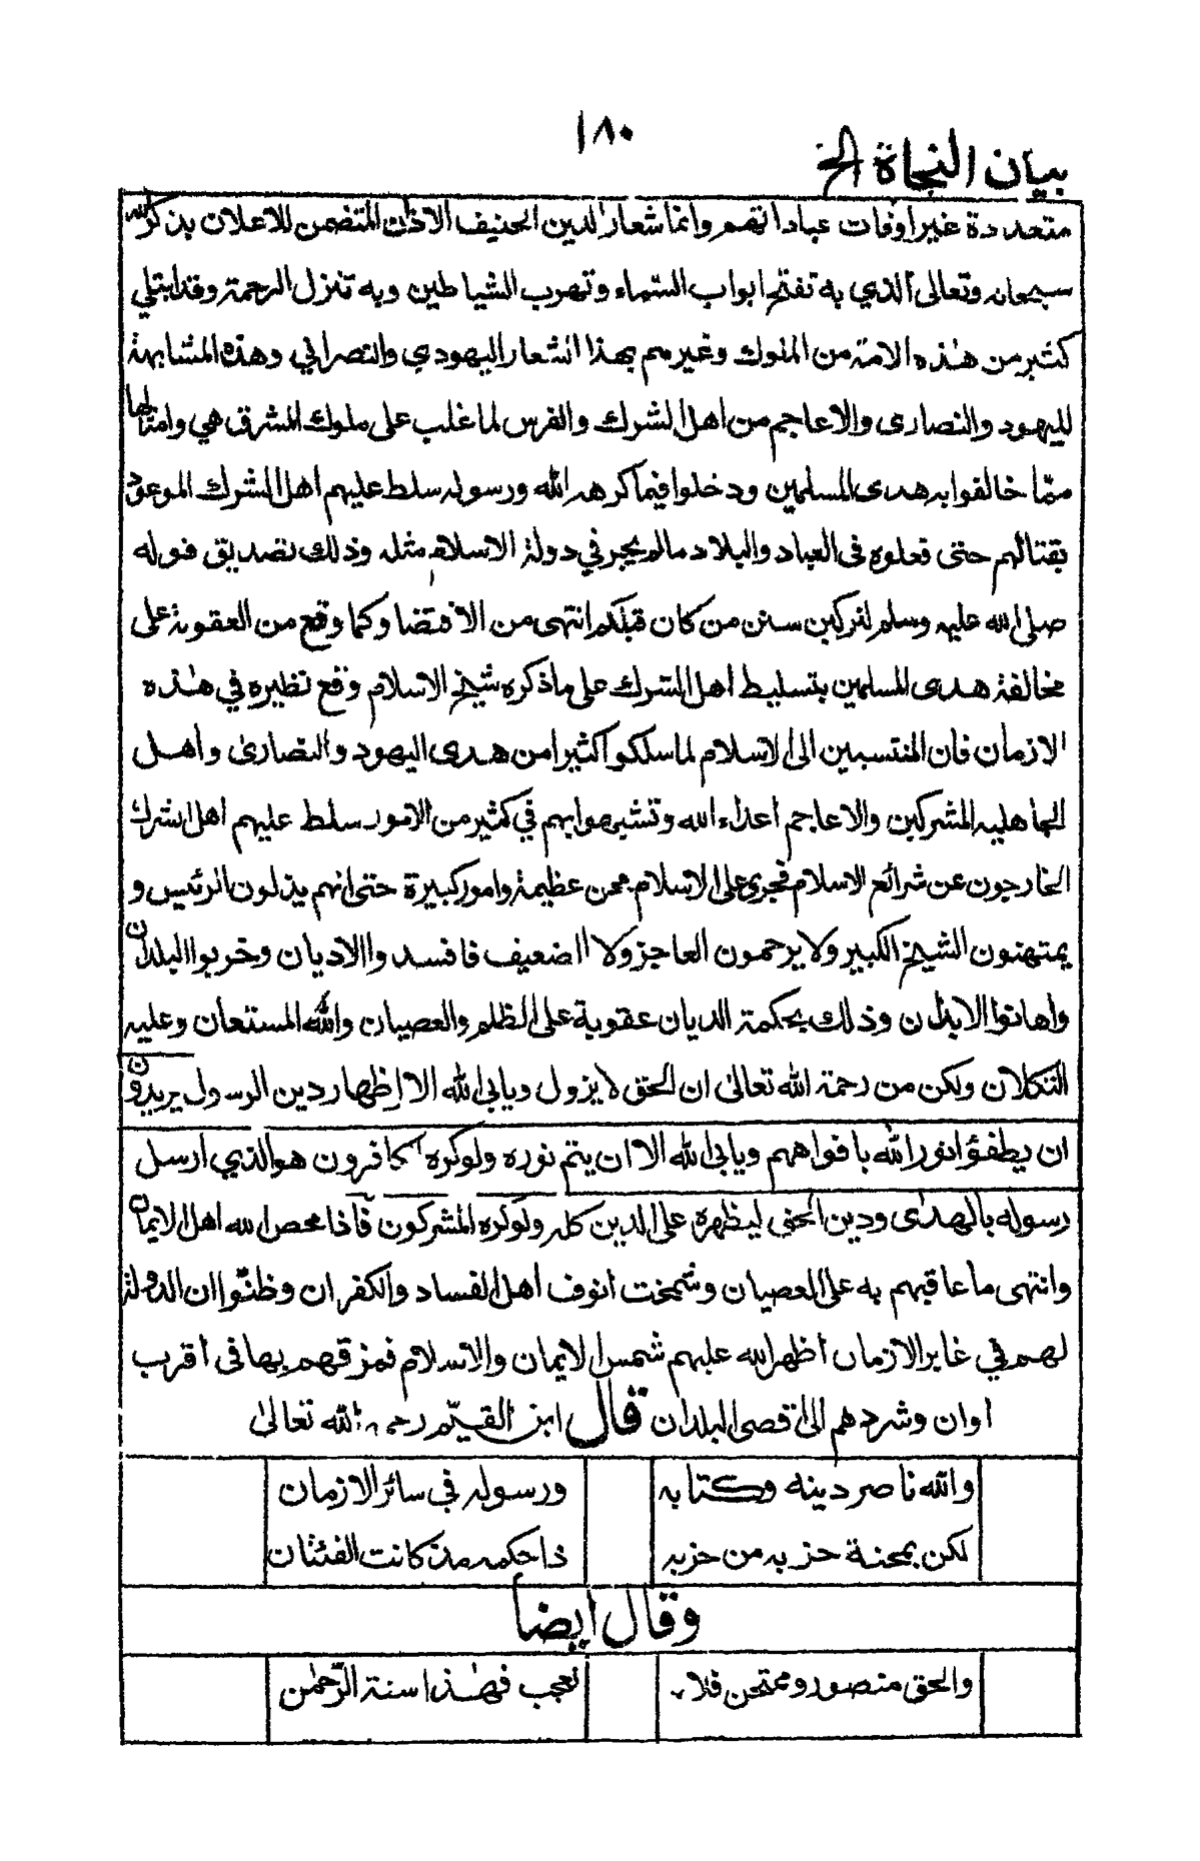 ١٨٠
بيان النجاة الخ
متعددة غير اوقات عباداتهم وانما شعار الدين الحنيف الاذان المتضمن للاعلان بذكر الله
سبحانه وتعالى الذي به تفتح ابواب السماء وتهرب الشياطين وبه تنزل الرحمة وقد ابتلي
كثير من هذه الامة من الملوك وغيرهم بهذا الشعار اليهودي والنصراني وهذه المشابهة
لليهود والنصارى والاعاجم من اهل الشرك والفرس لما غلب على ملوك المشرق هي وامثالها
ممّا خالفوا به هدى المسلمين ودخلوا فيما كرهه الله ورسوله سلط عليهم اهل الشرك الموعود
بقتالهم حتى فعلوه فى العباد والبلاد مالم يجر في دولة الاسلام مثله وذلك تصديق قوله
صلى الله عليه وسلم لتركبن سنن من كان قبلكم انتهى من الاقتضا وكما وقع من العقوبة على
مخالفة هدى المسلمين بتسليط اهل الشرك على ما ذكره شيخ الاسلام وقع نظيره في هٰذه
الازمان فان المنتسبين الى الاسلام لما سلكوا كثيرا من هدى اليهود والنصارىٰ واهل
الجاهليه المشركين والاعاجم اعداء الله وتشبهوا بهم في كثير من الامور سلط عليهم اهل الشرك
الخارجون عن شرائع الاسلام فجرى على الاسلام محن عظيمة وامور كبيرة حتى انهم يذلون الرئيس و
يمتهنون الشيخ الكبير ولا يرحمون العاجز ولا الضعيف فافسدوا الاديان وخربوا البلدان
واهانوا الابدان وذلك بحكمة الديان عقوبة على الظلم والعصيان والله المستعان وعليه
التكلان ولكن من رحمة الله تعالىٰ ان الحق لا يزول ويابى الله الا اظهار دين الرسول يريدون
ان يطفؤا نور الله بافواههم ويابى الله الا ان يتم نوره ولوكره الكافرون هو الذي ارسل
رسوله بالهدىٰ ودين الحق ليظهره على الدين كله ولوكره المشركون فاذا محص الله اهل الايمان
وانتهى ما عاقبهم به على العصيان وشمخت انوف اهل الفساد والكفران وظنّوا ان الدولة
لهم في غابر الازمان اظهر الله عليهم شمس الايمان والاسلام فمزقهم بها فى اقرب
اوان وشردهم الى اقصى البلدان قال ابن القيّم رحمه الله تعالىٰ
والله ناصر دينه وكتابه ورسوله في سائر الازمان
لكن بمحنة حزبه من حزبه ذا حكمه مذ كانت الفئتان
وقال ايضا
والحق منصور وممتحن فلا تعجب فهٰذا سنة الرّحمٰن